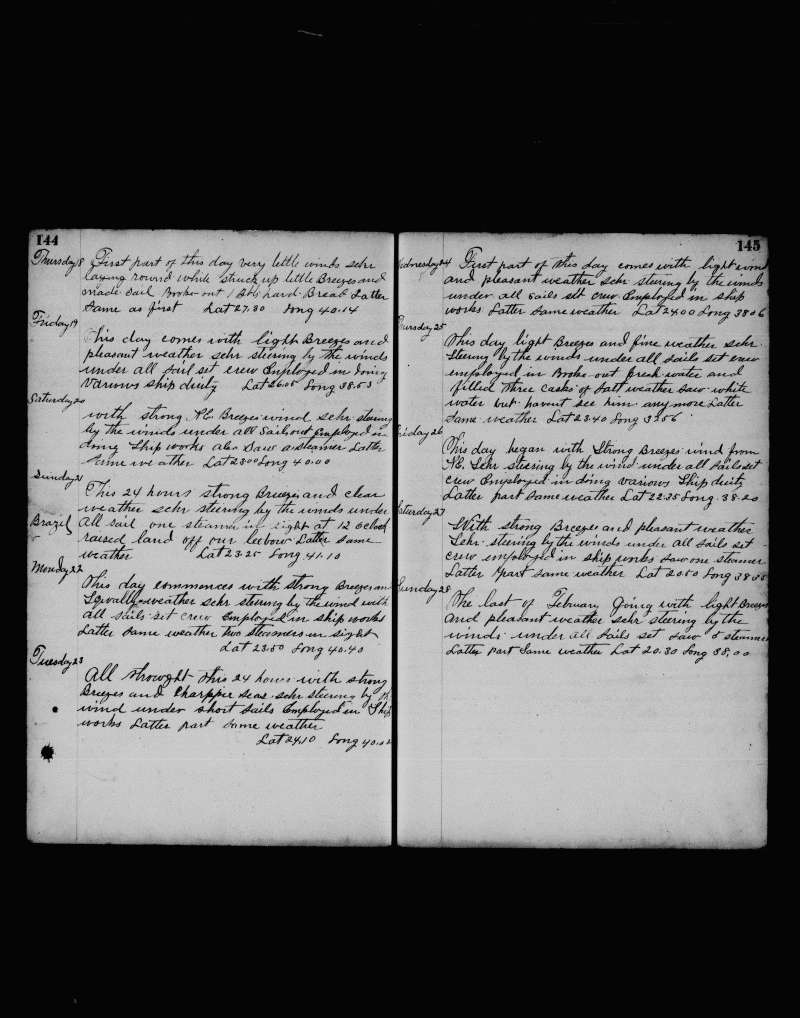 144
Thursday 18 First part of this day very little winds schr
laying round while struck up little Breezes and
made sail Broke out 1 Bbl hard Bread Latter
same as first Lat 27.30 Long 40.14
Friday 19
This day comes with light Breezes and
pleasant weather schr steering by the winds
under all sail set crew Employed in doing
various ship duity Lat 26.05 Long 38.53
Saturday 20
with strong NE Breezes wind schr steering
by the winds under all Sail Employed in
doing Ship works also Saw a steamer Latter
time weather Lat 23.00 Long 40.00
Sunday 21
This 24 hours strong Breezes and clear
weather schr steering by the winds under
Brazil all sail one steamer in sight at 12 oclock
raised land off our leebow Latter same
weather Lat 23.25 Long 41.10
Monday 22
This day commences with strong Breezes an
Sqwally weather schr steering by the wind with
all sails set crew Employed in ship works
Latter same weather two steamers in sight
Lat 23.50 Long 40.40
Tuesday 23
All throught this 24 hours with strong
Breezes and Charpper seas schr steering by the
wind under short sails Employed in Ship
works Latter part same weather
Lat 24.10 Long 40.02
145
Wednesday 24 First part of this day comes with light wind
and pleasant weather schr stering by the winds
under all sails set crew Employed in ship
works Latter same weather Lat 24.00 Long 38.06
Thursday 25
This day light Breezes and fine weather schr
steering by the winds under all sails set crew
employed in Broke out fresh water and
filled three casks of salt weather saw white
water but havent see him any more Latter
same weather Lat 23.40 Long 37.56
Friday 26
This day began with Strong Breezes wind from
NE. Schr steering by the wind under all sails set
crew Employed in doing various Ship duity
Latter part same weather Lat 22.35 Long. 38.20
Saturday 27
With strong Breezes and pleasant weather
Schr. steering by the winds under all sails set
crew employed in ship works saw one steamer
Latter part same weather Lat 20.50 Long 38.55
Sunday 28
The last of Febuary Going with light Breezes
and pleasant weather schr steering by the
winds under all sails set saw 5 steamers
Latter part same weather Lat 20.30 Long 38.00